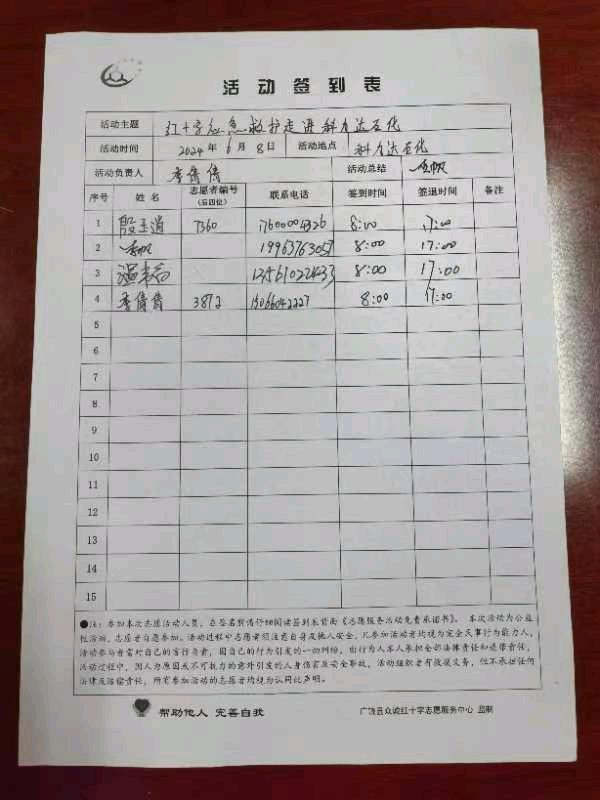 活动签到表
活动主题 红十字应急救护走进科力达石化
活动时间 2024年6月8日 活动地点 科力达石化
活动负责人 李倩倩 活动总结
序号 姓名 志愿者编号（后四位） 联系电话 签到时间 签退时间 备注
1 7360 17600004326 8:00 17:00
2 19963763057 8:00 17:00
3 8:00 17:00
4 李倩倩 3872 8:00 17:00
5
6
7
8
9
10
11
12
13
14
15
●注：参加本次志愿活动人员，在签名前请仔细阅读签到表背面《志愿服务活动免责承诺书》。本次活动为公益
性活动，志愿者自愿参加。活动过程中志愿者须注意自身及他人安全。凡参加活动者均视为完全民事行为能力人，
活动参与者需对自己的言行负责，因自己的行为引发的一切纠纷，由行为人本人承担全部法律责任和连带责任。
活动过程中，因人为原因或不可抗力的意外引发的人身伤害及安全事故，活动组织者有救援义务，但不承担任何
法律及赔偿责任，所有参加活动的志愿者均视为认同此声明。
帮助他人 完善自我 广饶县众诚红十字志愿服务中心 监制